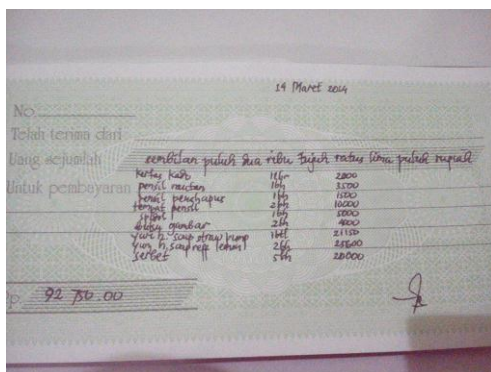 14 Maret 2014
No.
Telah terima dari
Uang sejumlah sembilan puluh dua ribu tujuh ratus lima puluh rupiah
Untuk pembayaran
kertas kado 1 lbr 2000
pensil rautan 1bh 3500
pensil penghapus 1bh 1500
tempat pensil 2bh 10000
1bh 5000
buku gambar 2bh 4000
yuri h. soap straw pump 1btl 21150
yuri h. soap reff lemon 2bh 25600
serbet 5bh 20000
Rp. 92 750.00